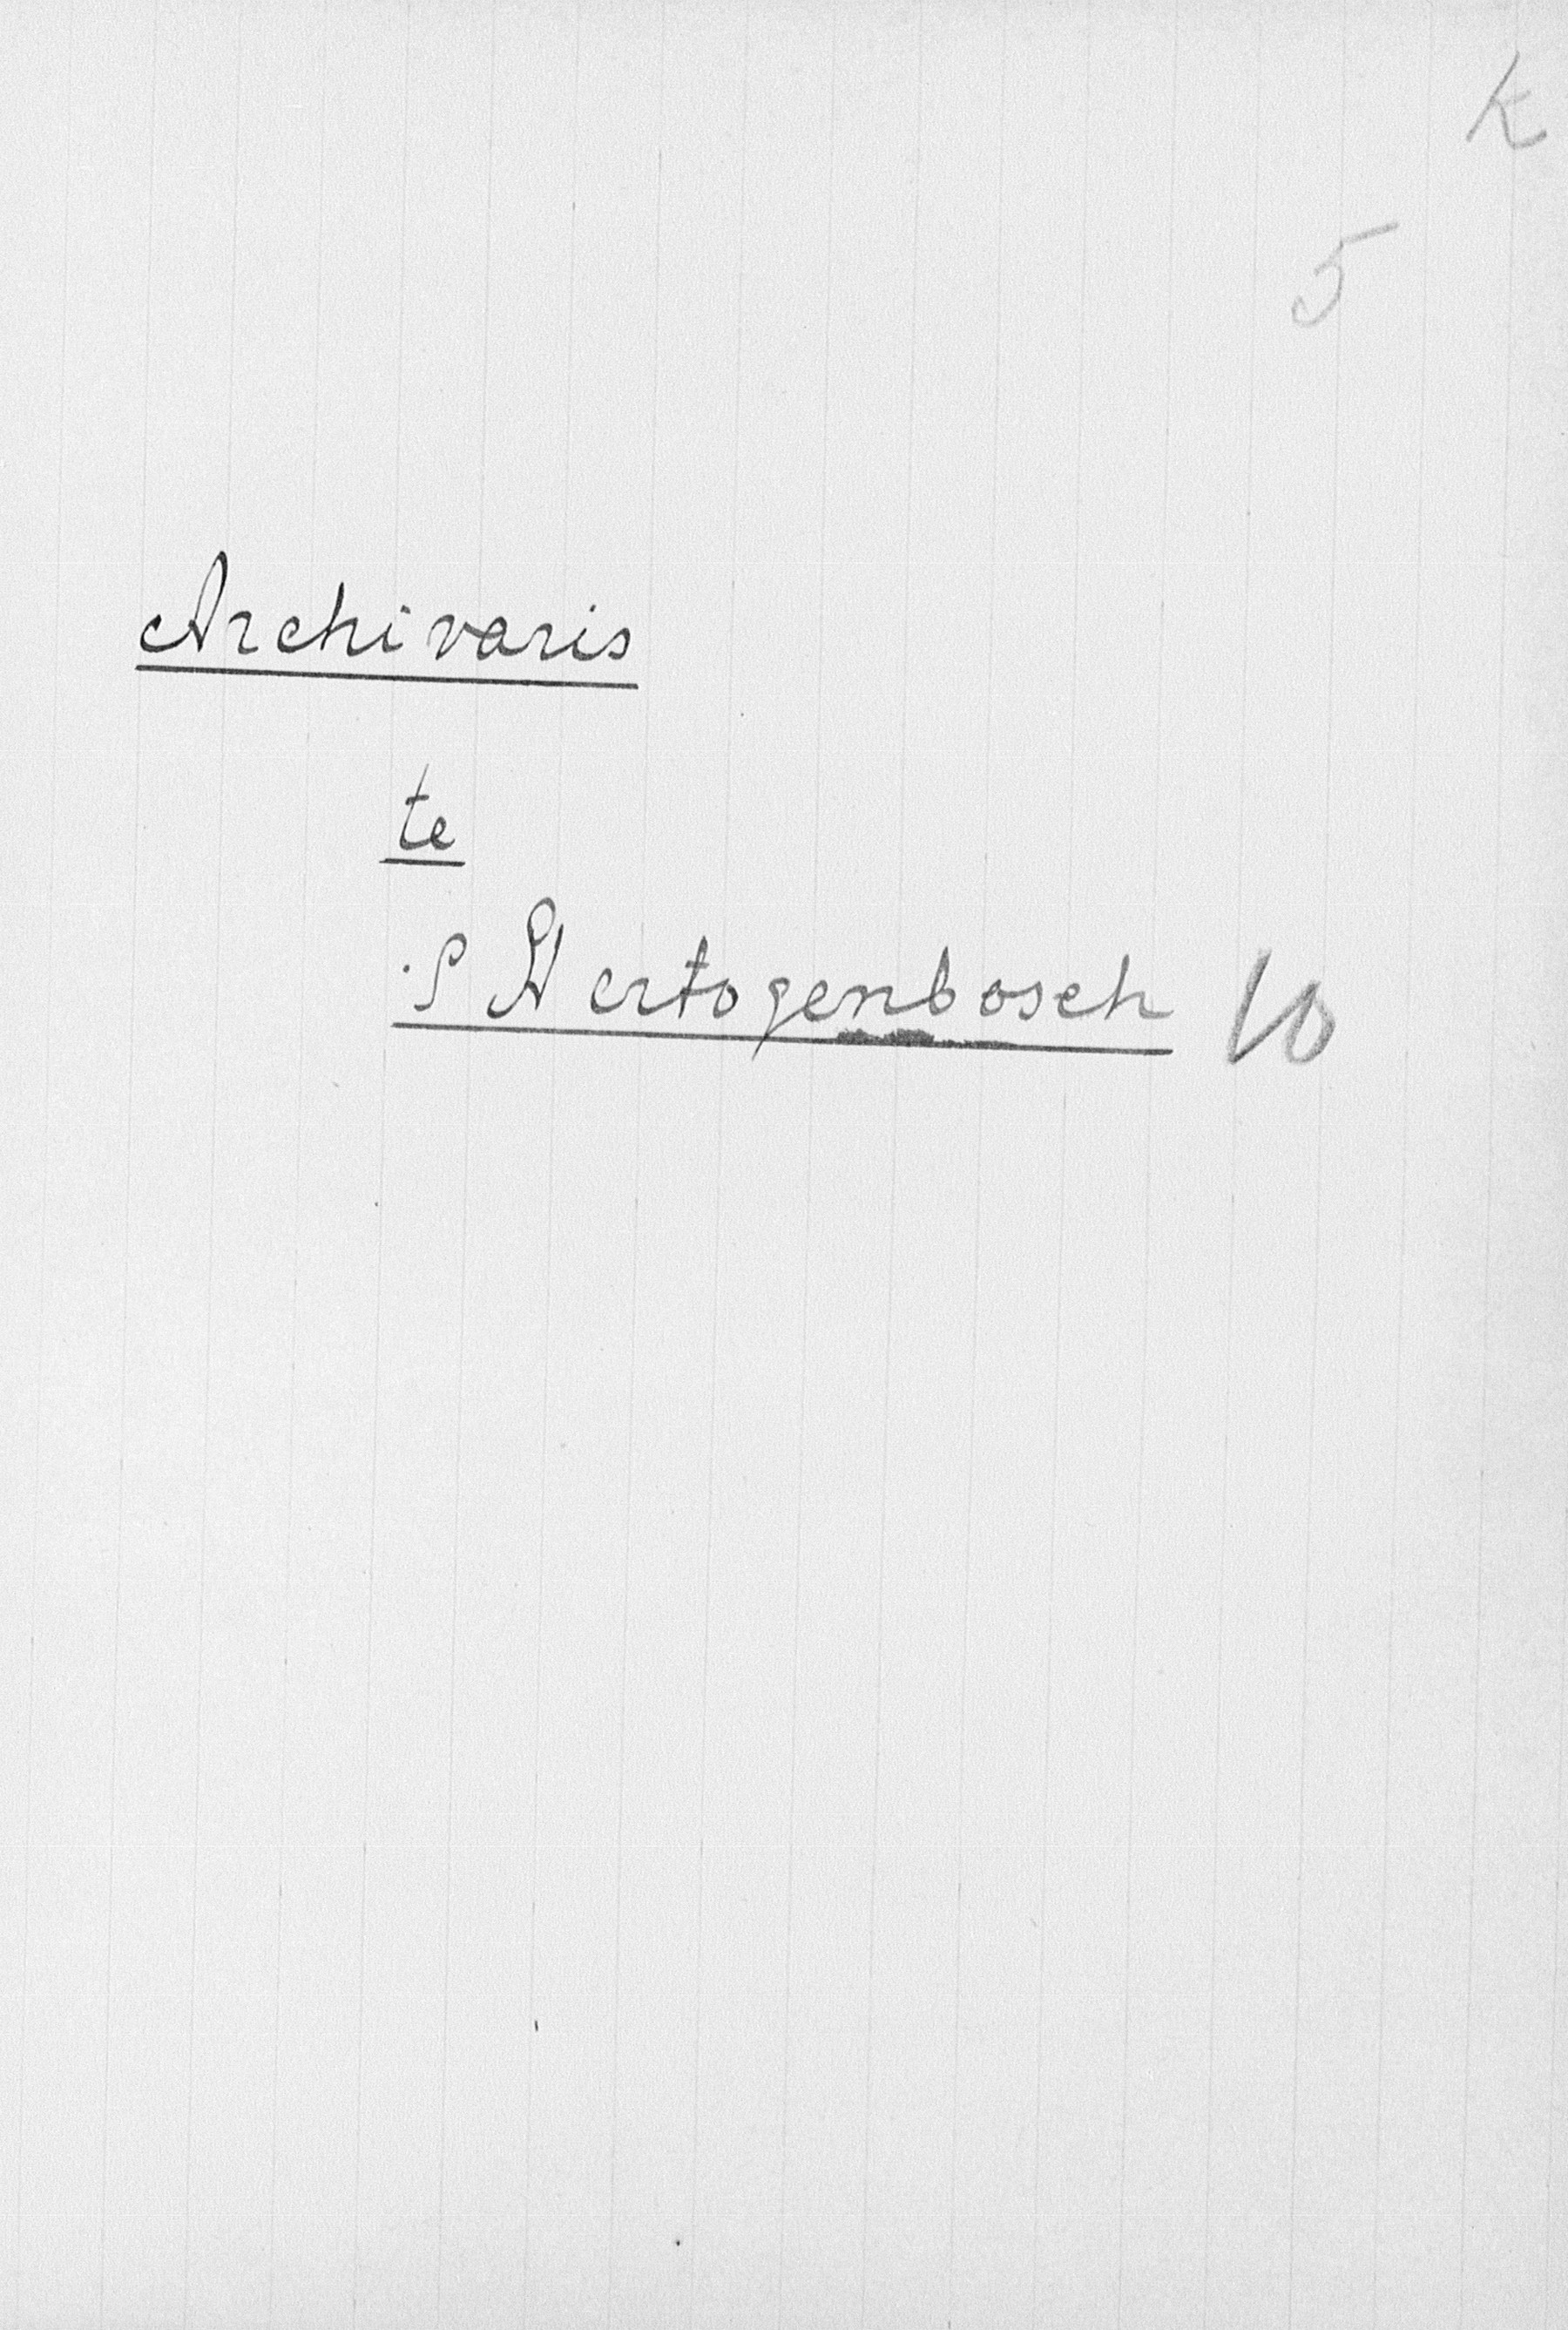 K
5
Archivaris
te
's Hertogenbosch 10